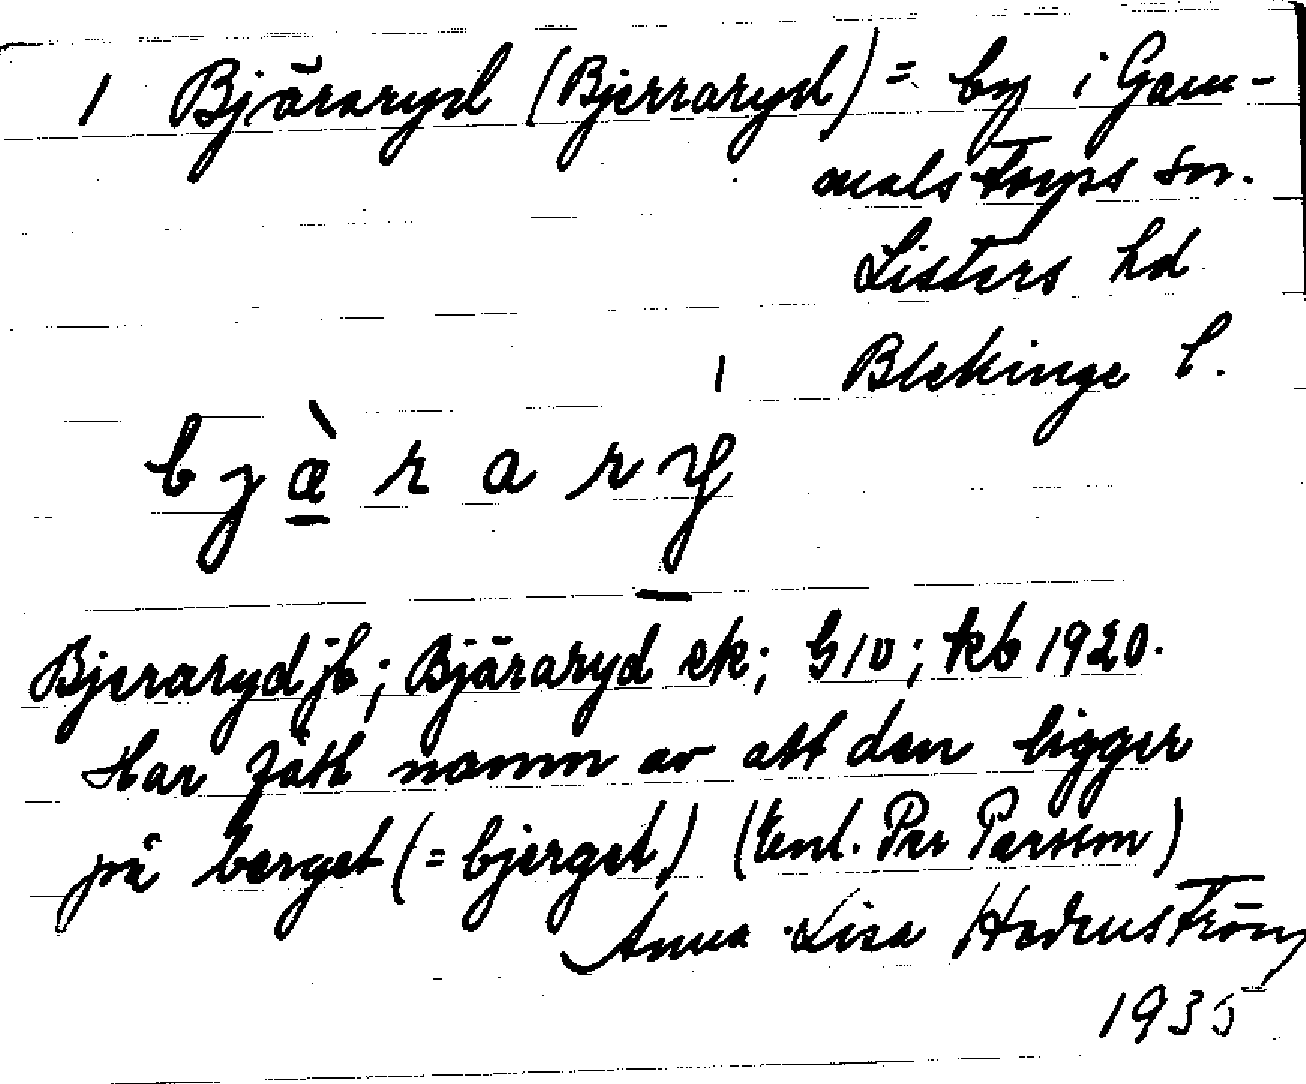 1 Bjäraryd (Bjerraryd) = by i Gam-
malstorps sn.
Listers hd
Blekinge l.
Bjeraryd jb; Bjäraryd ek; G10; tkb 1920.
Har fått namn av att den ligger
på berget (= bjerget) (enl. Per Persson)
Anna Lisa Hedenström
1935